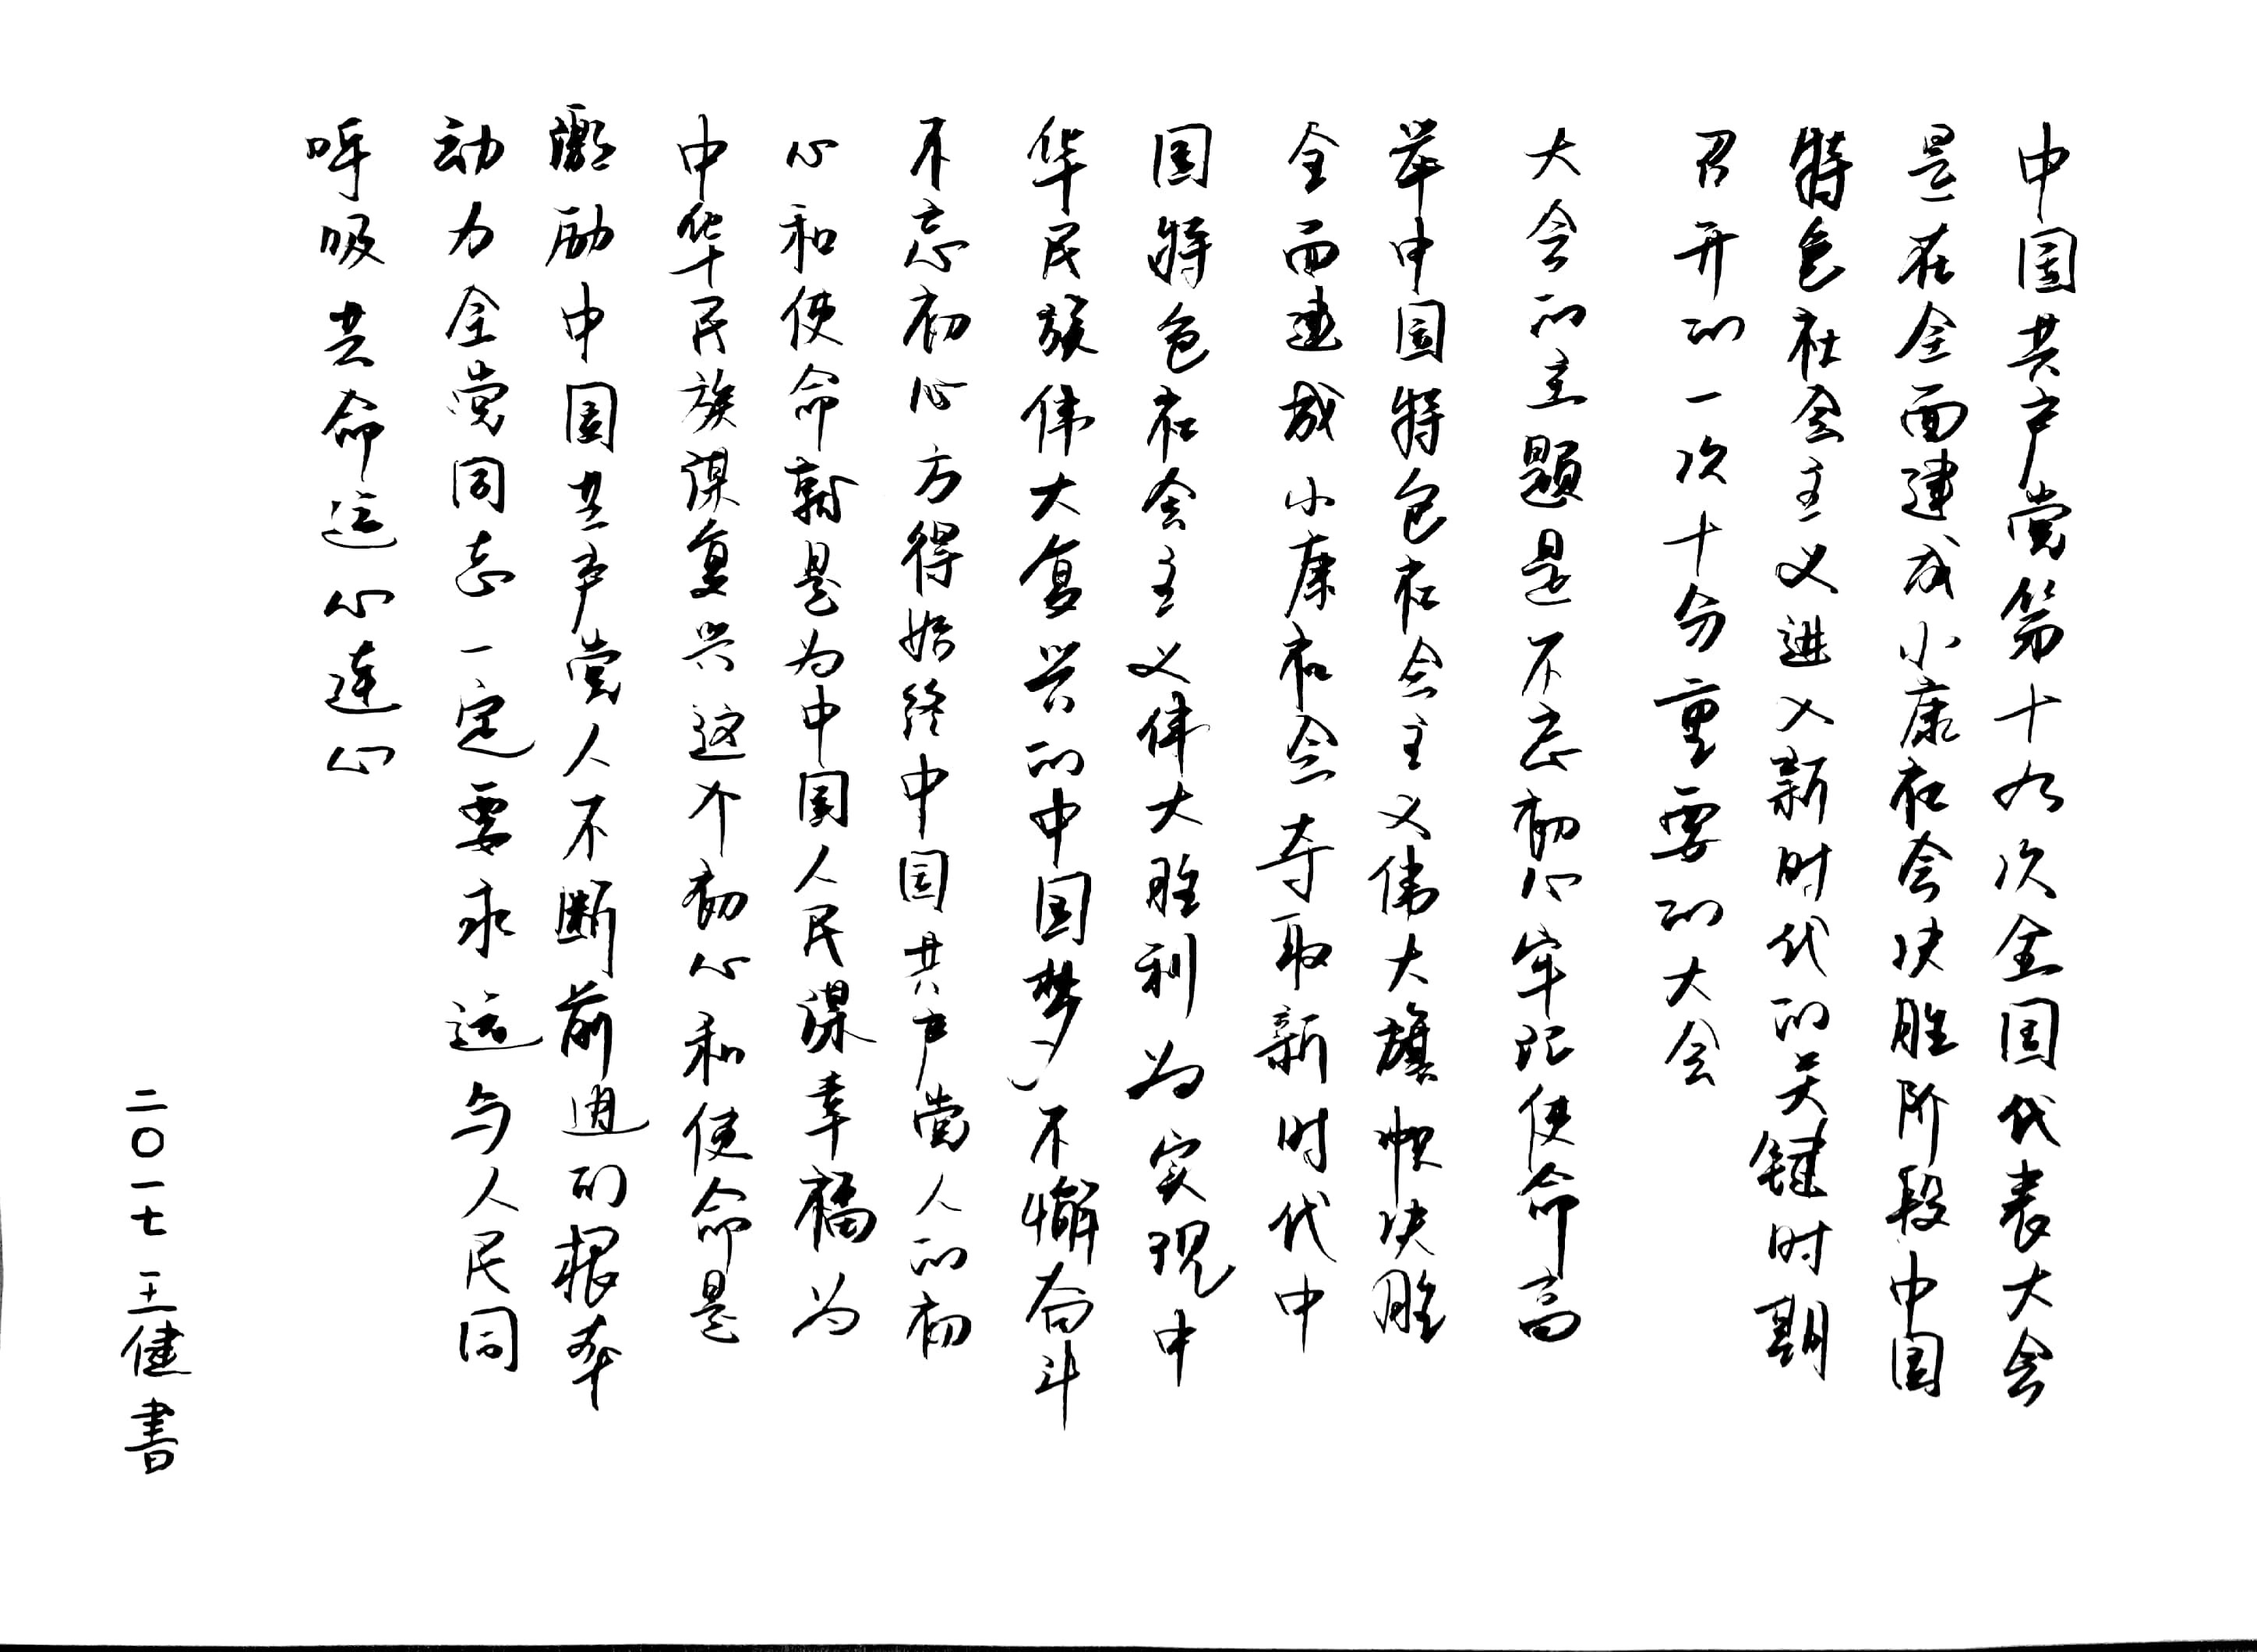 中国共产党第十九次全国代表大会
是在全面建成小康社会决胜阶段中国
特色社会主义进入新时代的关键时期
召开的一次十分重要的大会
大会的主题是不忘初心牢记使命高
举中国特色社会主义伟大旗帜决胜
全面建成小康社会夺取新时代中
国特色社会主义伟大胜利为实现中
华民族伟大复兴的中国梦不懈奋斗
不忘初心方得始终中国共产党人的初
心和使命就是为中国人民谋幸福为
中华民族谋复兴这个初心和使命是
激励中国共产党人不断前进的根本
动力全党同志一定要永远与人民同
呼吸共命运心连心
二〇一七王健書